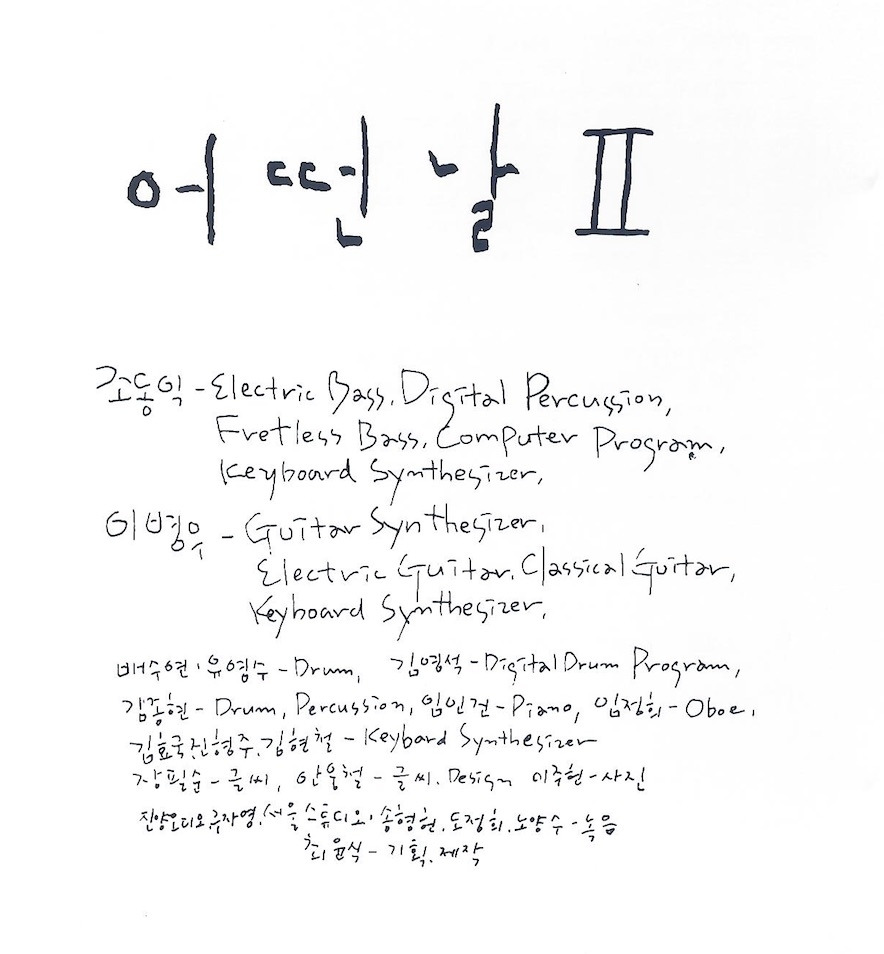 어떤날 II
조동익 - Electric Bass, Digital Percussion,
Fretless Bass, Computer Program,
Keyboard Synthesizer,
이병우 - Guitar Synthesizer,
Electric Guitar, Classical Guitar,
Keyboard Synthesizer,
배수연·유영수 - Drum, 김영석 - Digital Drum Program,
김종현 - Drum, Percussion, 임인건 - Piano, 임정희 - Oboe,
김효국, 진형주, 김현철 - Keyboard Synthesizer
장필순 - 글씨, 안웅철 - 글씨, Design 이주헌 - 사진
진양오디오, 류자영, 서울스튜디오·송형헌, 도정회, 노양수 - 녹음
최윤식 - 기획, 제작